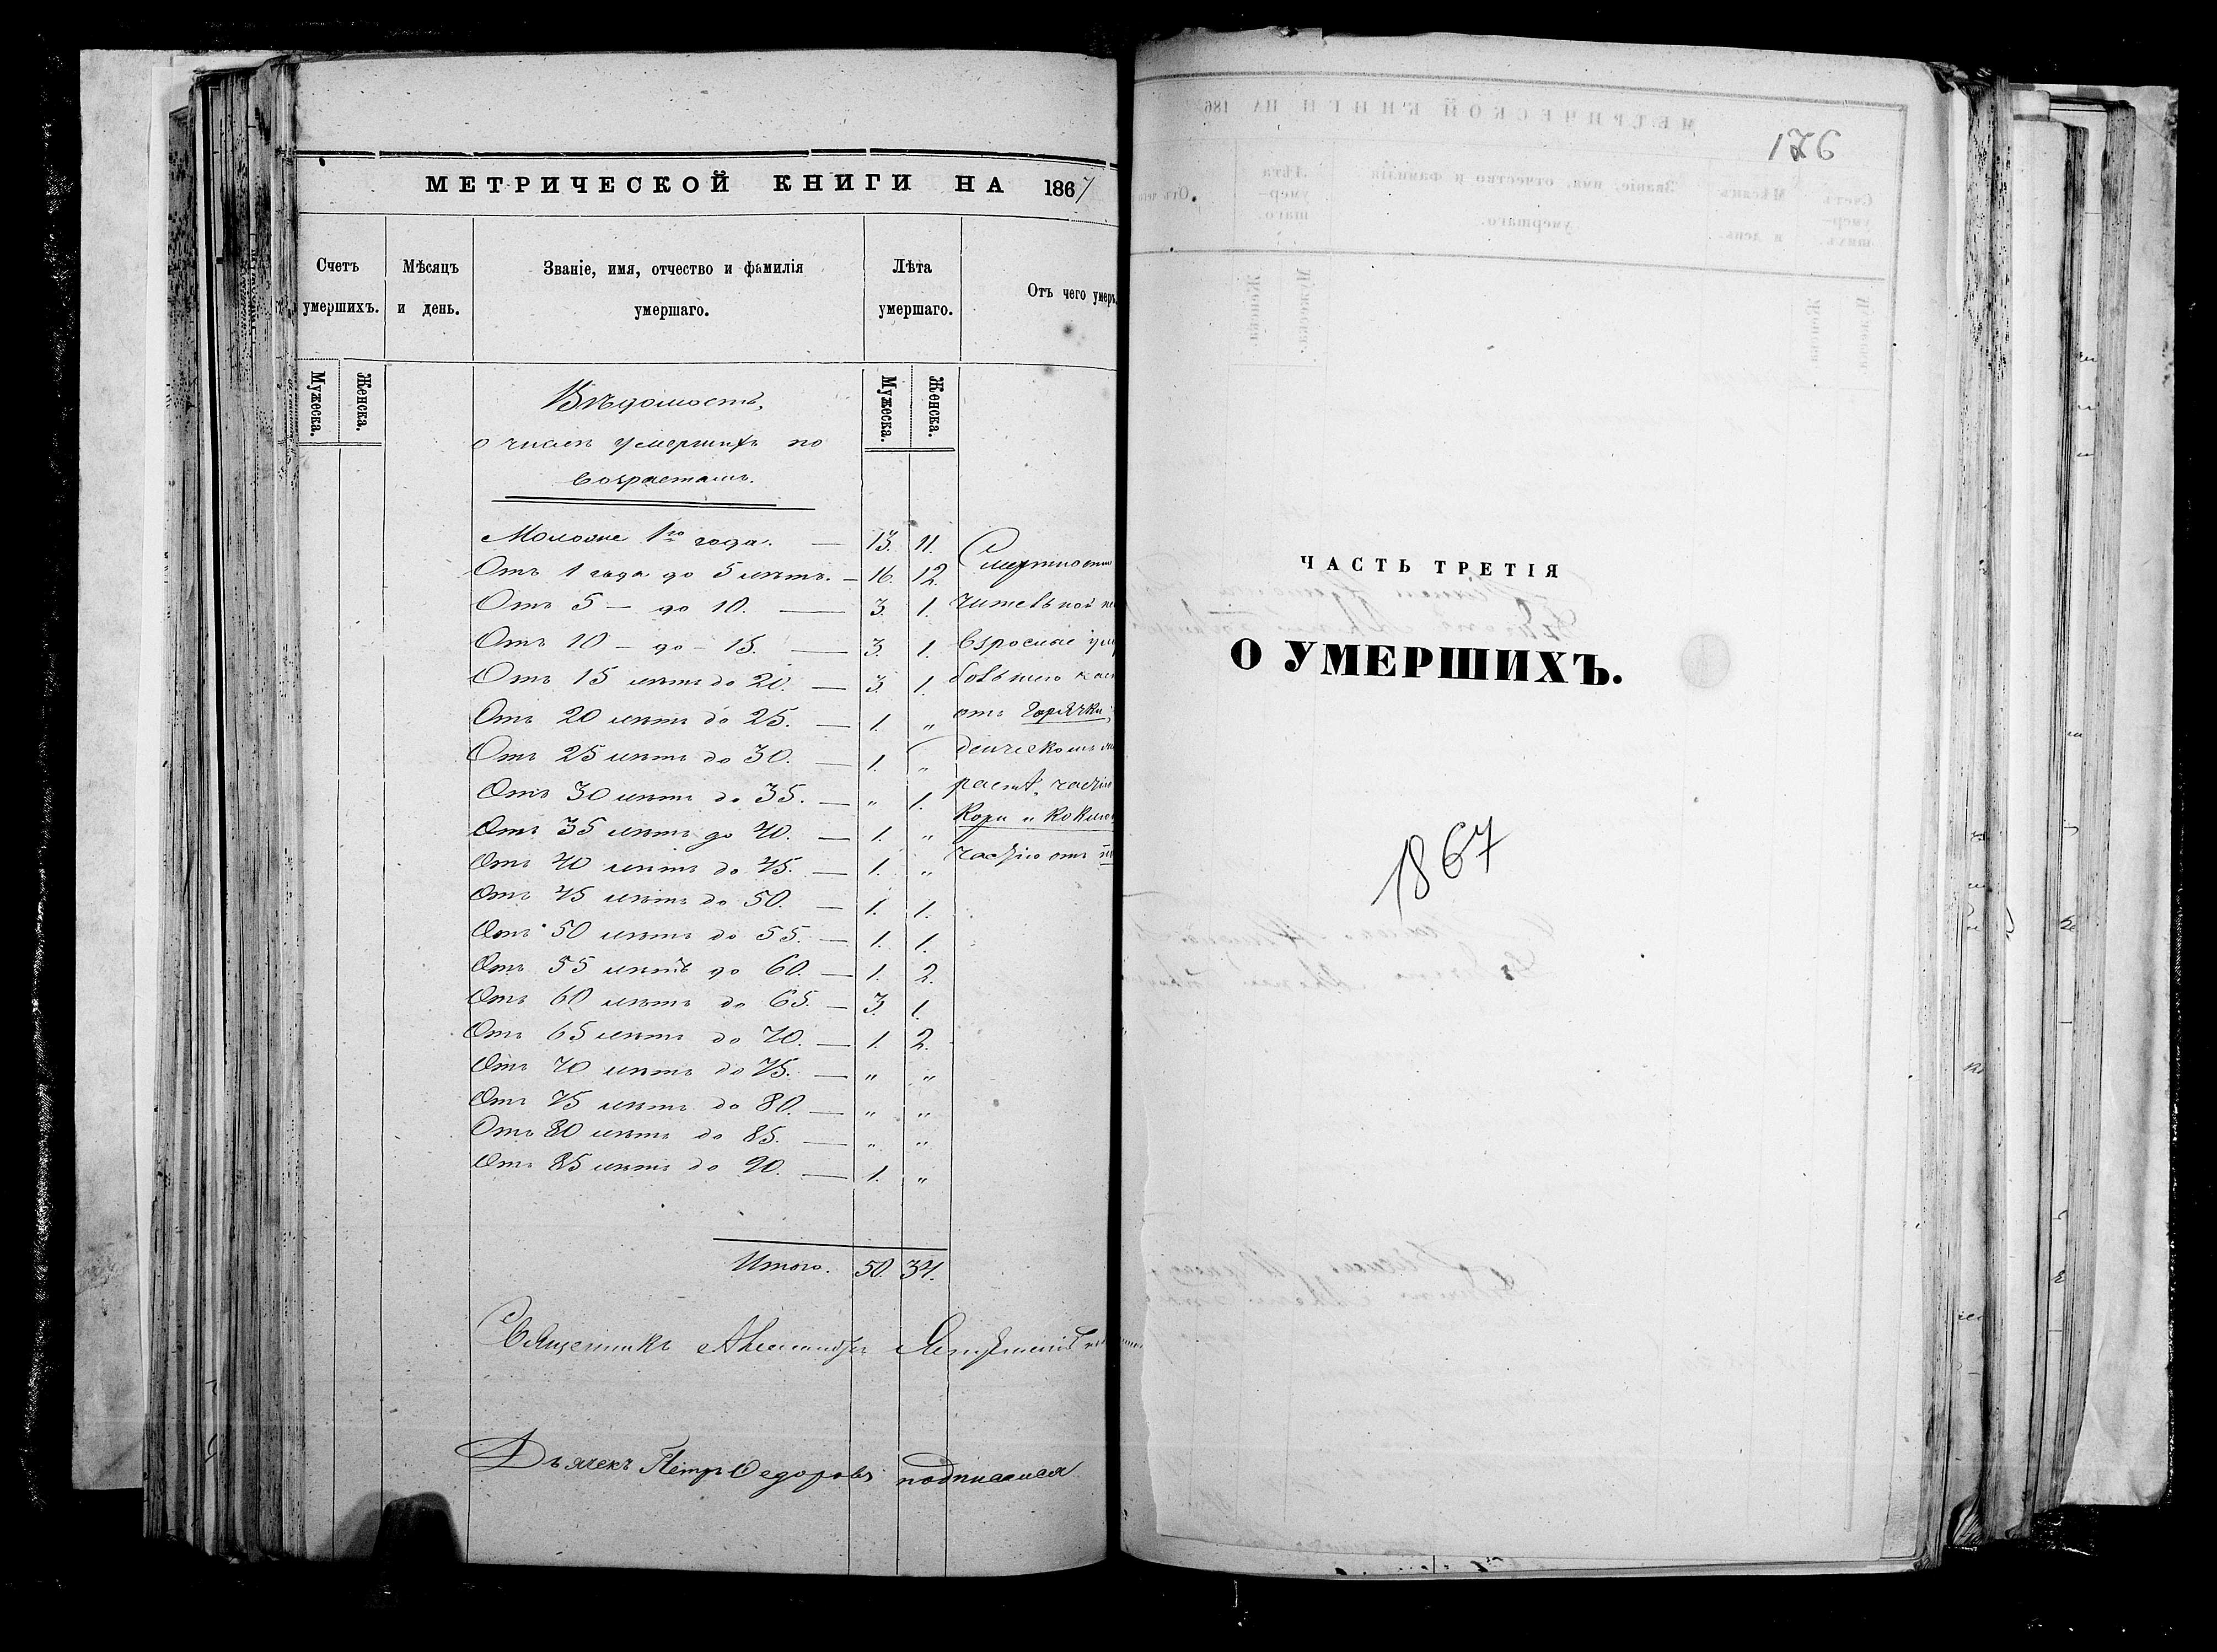 МЕТРИЧЕСКОЙ КНИГИ НА 1867
Счетъ умершихъ.
Мѣсяцъ и день.
Званіе, имя, отчество и фамилія умершаго.
Лѣта умершаго.
Отъ чего умеръ
Мужеска.
Женска.
Мужеска.
Женска.
Вѣдомость,
о числѣ умершихъ по
возрастамъ.
Моложе 1го года. — 13. 11.
Отъ 1 года до 5 лѣтъ. — 16. 12.
Отъ 5 — до 10. — 3. 1.
Отъ 10 — до — 15. — 3. 1.
Отъ 15 лѣтъ до 20. — 3. 1.
Отъ 20 лѣтъ до 25. — 1. „
Отъ 25 лѣтъ до 30. — 1. „
Отъ 30 лѣтъ до 35. — „ 1.
Отъ 35 лѣтъ до 40. — 1. „
Отъ 40 лѣтъ до 45. — 1. „
Отъ 45 лѣтъ до 50. — 1. 1.
Отъ 50 лѣтъ до 55. — 1. 1.
Отъ 55 лѣтъ до 60. — 1. 2.
Отъ 60 лѣтъ до 65. — 3. 1.
Отъ 65 лѣтъ до 70. — 1. 2.
Отъ 70 лѣтъ до 75. — „ „
Отъ 75 лѣтъ до 80. — „ „
Отъ 80 лѣтъ до 85. — „ „
Отъ 85 лѣтъ до 90. — 1. „
Итого. 50. 34.
взрослые
отъ горячки,
кори и
частію отъ
Священникъ Александръ
Дьячекъ Петръ Ѳедоровъ подписался
176
ЧАСТЬ ТРЕТІЯ
О УМЕРШИХЪ.
1867